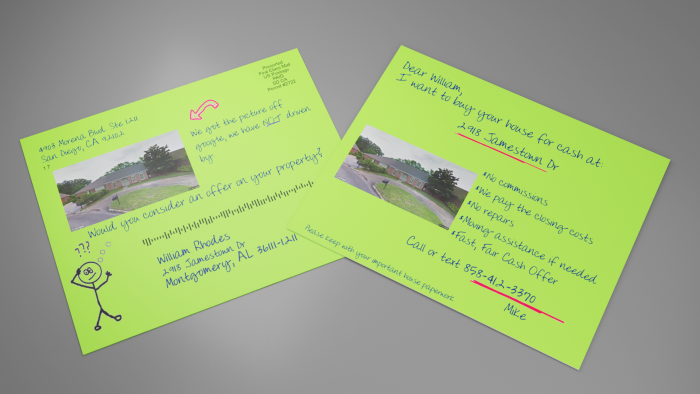 Presorted
First Class Mail
US Postage
PAID
4908 Morena Blvd. Ste 1211
San Diego, CA 92102
We got the picture off
google, we have NOT driven
by.
Would you consider an offer on your property?
William Rhodes
2918 Jamestown Dr
Montgomery, AL 36111-1211
???
Dear William,
I want to buy your house for cash at:
2918 Jamestown Dr
•No commissions
•We pay the closing costs
•No repairs
•Moving assistance if needed
•Fast, Fair Cash Offer
Call or text 858-412-3370
Mike
Please keep with your important house paperwork